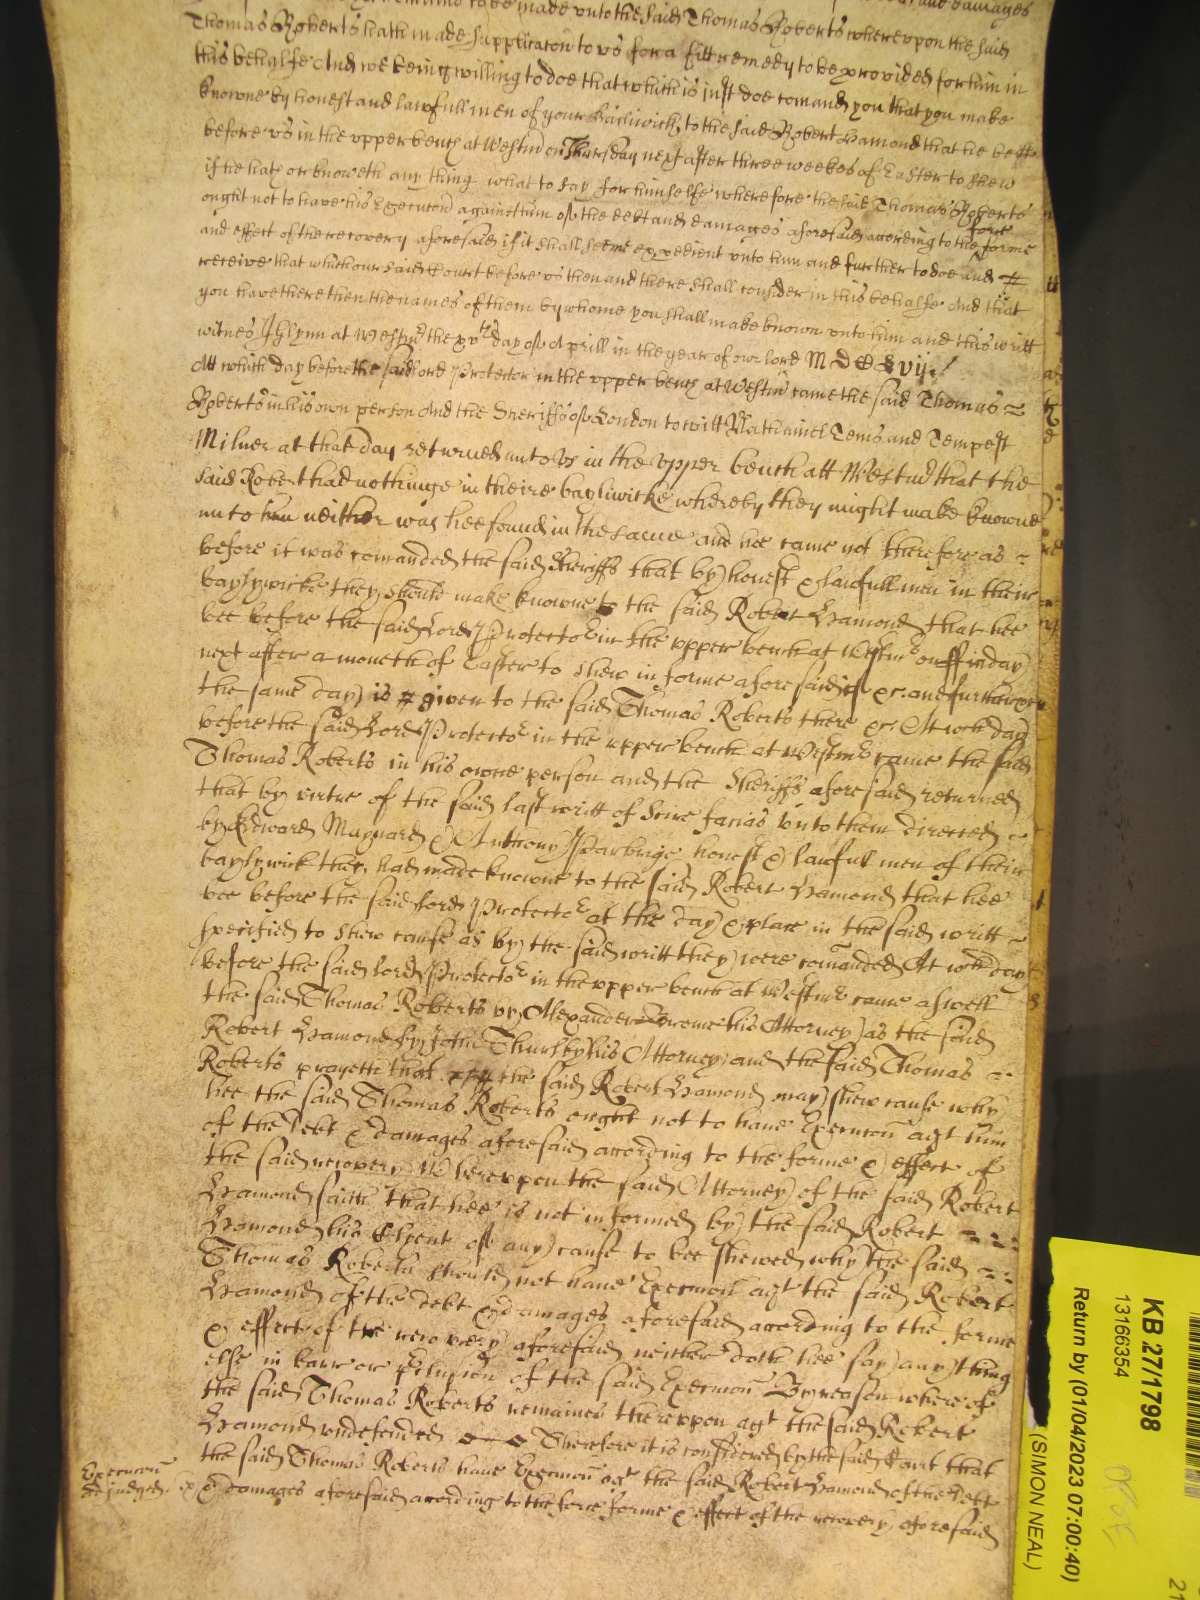 made unto the said Thomas Roberts whereupon the said
Thomas Roberts hath made supplicacon to us for a fitt remedy to be provided for him in
this behalfe And we being willing to doe that which is just doe comand you that you make
knowne by honest and lawfull men of your Bailiwick to the said Robert Hamond that he be
before us in the upper bench at Westm on Thursday next after three weekes of Easter to shew
if he hath or knoweth any thing what to say for himselfe wherefore the said Thomas Roberts
ought not to have his Execucon against him of the debt and damages aforesaid according to the force forme
and effect of the recovery aforesaid if it shall seeme expedient unto him and further to doe and
receive that which our said Court before us then and there shall consider in this behalfe And that
you have there then the names of them by whome you shall make known unto him and this writt
witnes J Glynn at Westm the xvth day of Aprill in the yeare of our lord MDCLvij
Att which day before the said lord Protector in the upper bench at Westm came the said Thomas
Roberts in his own person And the Sheriffs of London to witt Nathaniel Tems and Tempest
Milner at that day returned unto us in the upper bench att Westm that the
said Robert had nothinge in theire bayliwicke whereby they might make knowne
unto him neither was hee found in the same and hee came not therefore as
before it was comanded the said Sheriffs that by honest & lawfull men in their
baylywicke they should make knowne to the said Robert Hamond that hee
bee before the said Lord Protector in the upper bench at Westmr on ffriday
next after a moneth of Easter to shew in forme aforesaid if &c. and further &c
the same day is given to the said Thomas Roberts there &c Att wch day
before the said Lord Protector in the upper bench at Westmr came the said
Thomas Roberts in his owne person and the Sheriffs aforesaid returned
that by virtue of the said last writt of Scire facias unto them directed
by Edward Maynard & Anthony Parbrige honest & lawfull men of their
baylywick they had made knowne to the said Robert Hamond that hee
bee before the said lord Protector at the day & place in the said writt
specified to shew cause as by the said writt they were comanded At wch day
before the said lord Protector in the upper bench at Westmr came aswell
the said Thomas Roberts by Alexander Brome his Attorney as the said
Robert Hamond by John Thursby his Attorney and the said Thomas
Roberts prayeth that the said Robert Hamond may shew cause why
hee the said Thomas Roberts ought not to have Execucon agt him
of the debt & damages aforesaid according to the forme & effect of
the said recovery Whereupon the said Attorney of the said Robert
Hamond saith that hee is not informed by the said Robert
Hamond his Clyent of any cause to bee shewed why the said
Thomas Roberts should not have Execucon agt the said Robert
Hamond of the debt & damages aforesaid according to the forme
& effect of the recovery aforesaid neither doth hee say any thing
else in barr or p'clusion of the said Execucon By reason whereof
the said Thomas Roberts remaines thereuppon agt the said Robert
Hamond undefended Therefore it is considered by the said Court that
the said Thomas Roberts have Execucon agt the said Robert Hamond of the debt
& damages aforesaid according to the force forme & effect of the recovery aforesaid
Execucon
adjudged
KB 27/1798
13166354
Return by (01/04/2023 07:00:40)
(SIMON NEAL)